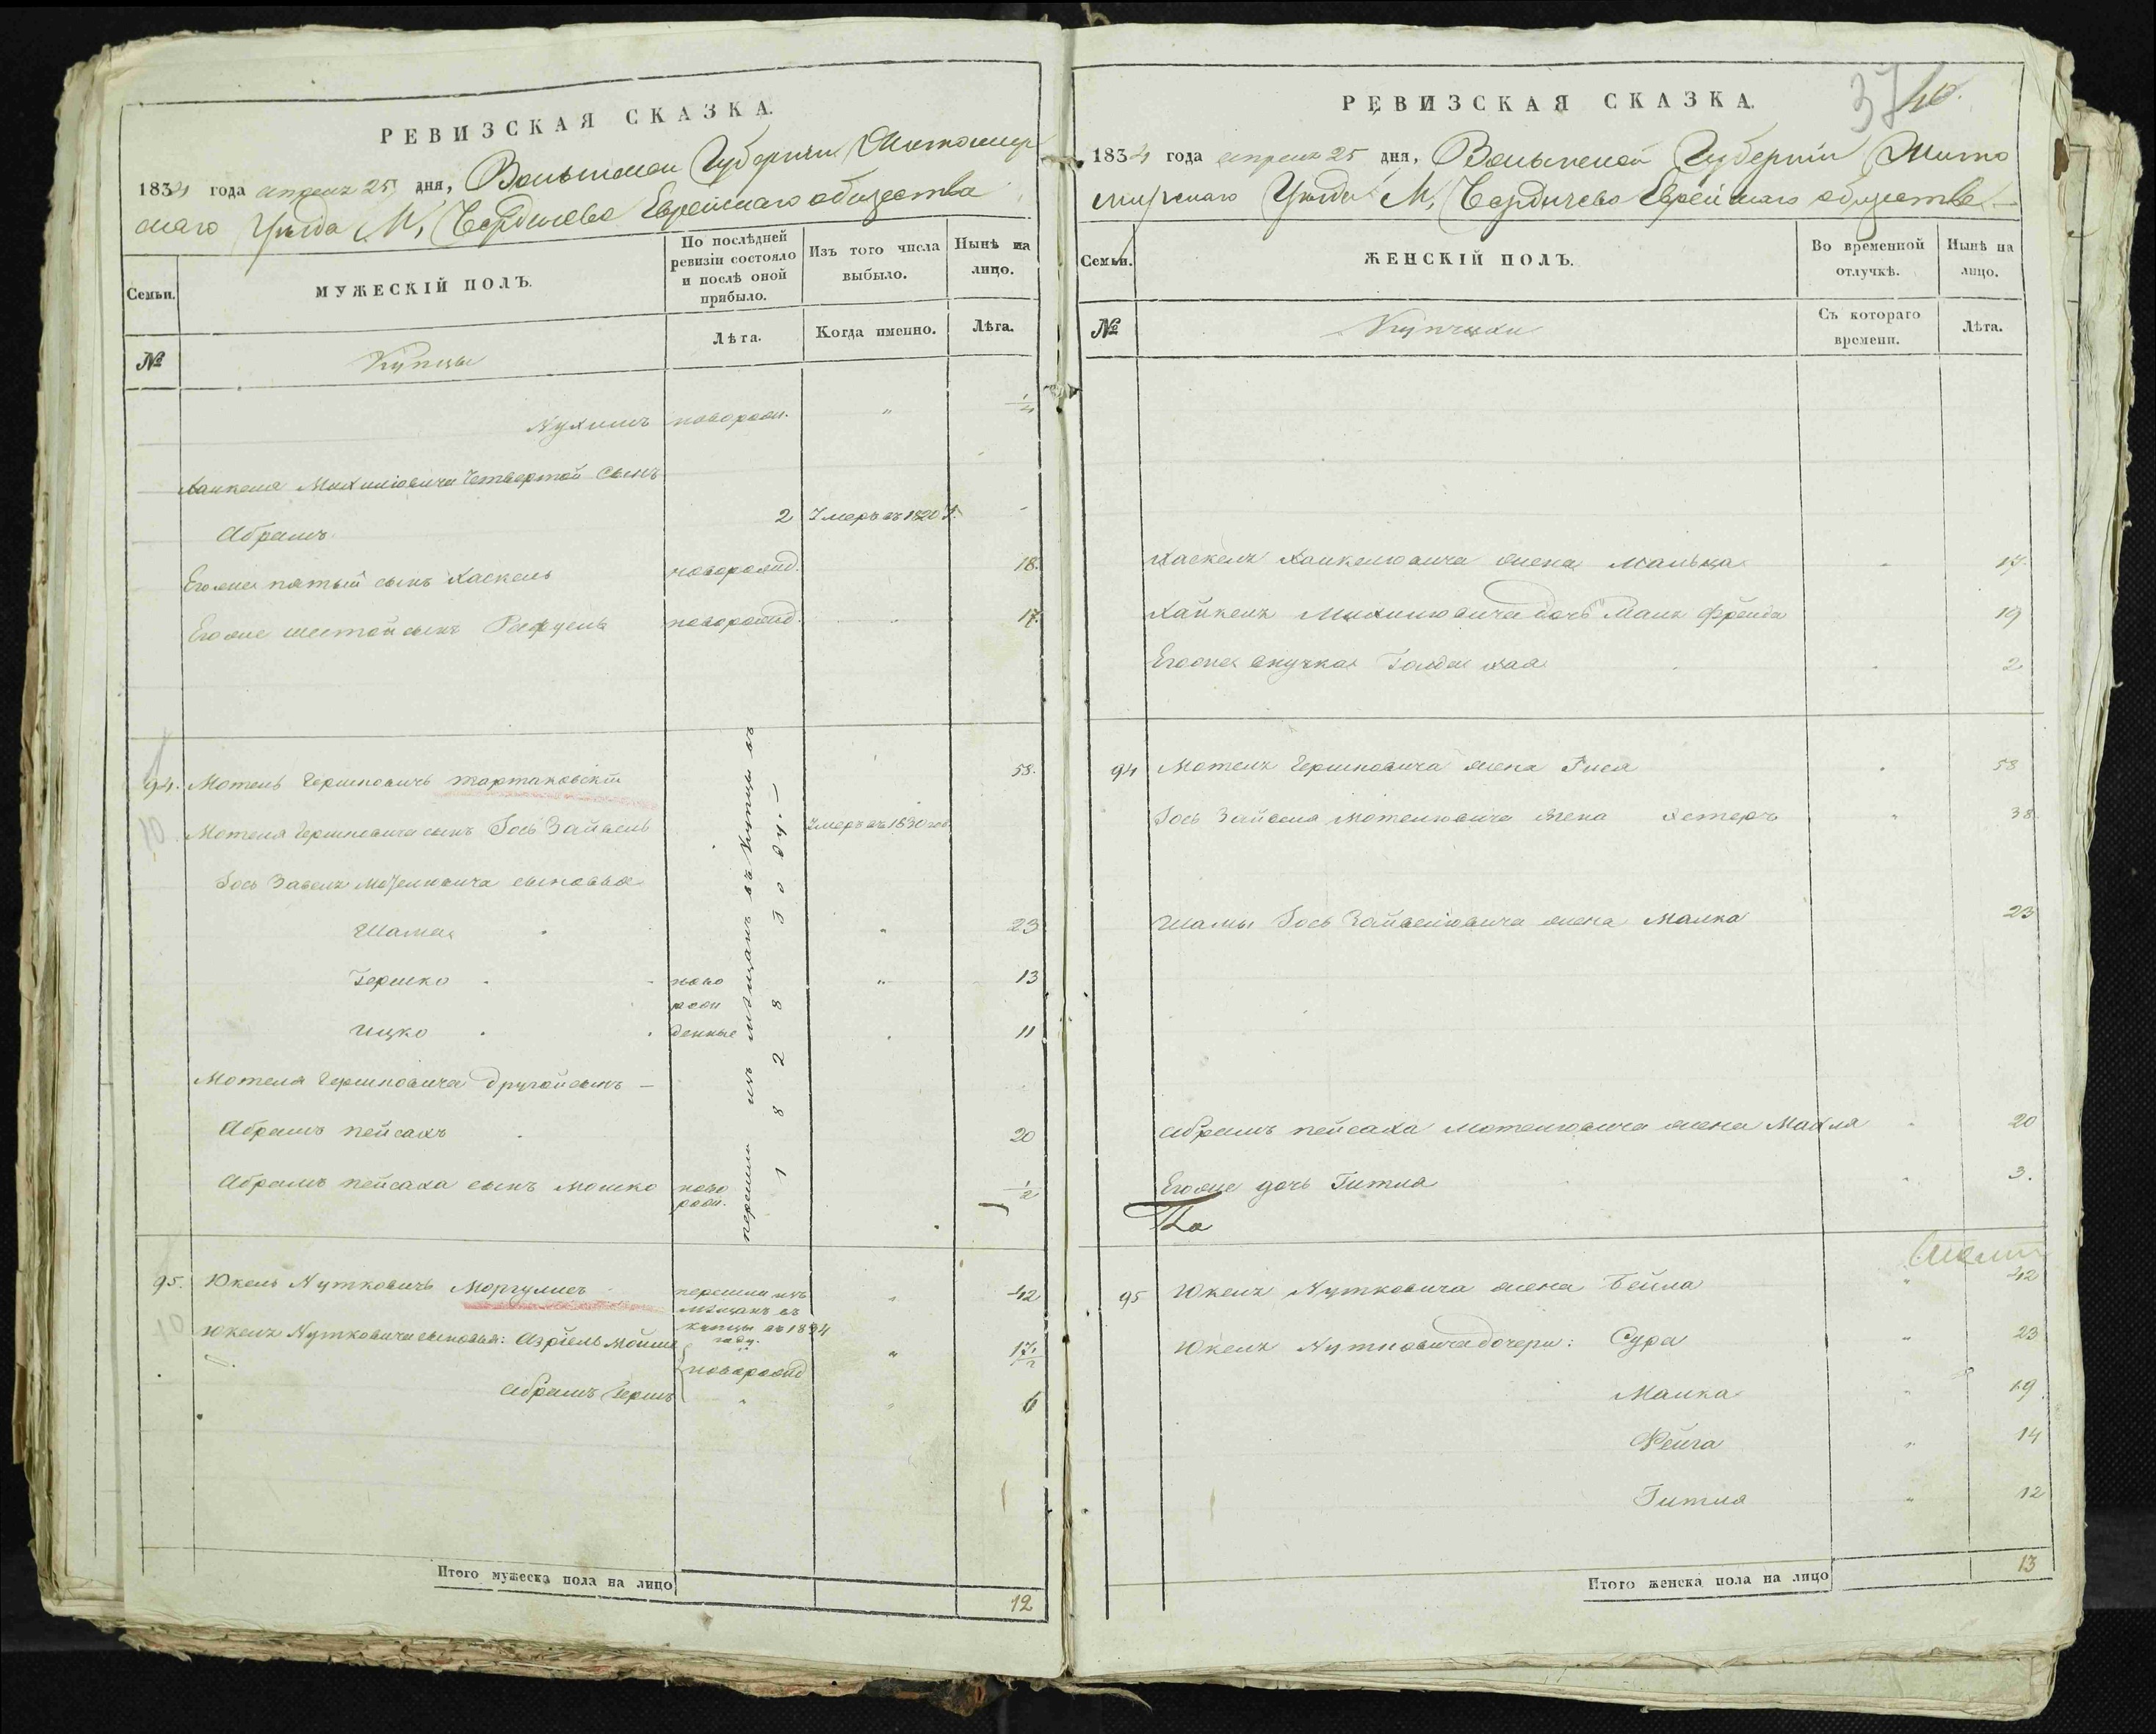 РЕВИЗСКАЯ СКАЗКА.
1834 года апреля 25 дня, Волынской Губернии Житомир
скаго Уезда М, Бердичева Еврейскаго общества
Семьи.
МУЖЕСКІЙ ПОЛЪ.
По послѣдней ревизіи состояло и послѣ оной прибыло.
Изъ того числа выбыло.
Нынѣ на лицо.
№
Купцы
Лѣта.
Когда именно.
Лѣта.
Нухимъ поворожн. " 1/4
Хаикеля Михилювича Четвертой Сынъ
Абрамъ 2 Умеръ въ 1820 г.
Егоже пятый сынъ Хаскель новорожд. 18.
Егоже шестой сынъ новорожд. 17.
94. Мотель Гершковичъ тартаковскій 58.
10
Мотеля Гершковича сынъ Іось Зайвель Умеръ въ 1830 год.
Іось Завель Мотелювича сыновья
Шама " 23
Гершко ново " 13
рож
Ицко денные 11
Мотеля Гершковича другой сынъ —
Абрамъ пейсахъ 20
Абрамъ пейсаха сынъ Мошко ново 1/2
рож.
перешли изъ мѣщанъ въ купцы въ
1828 году. —
95. Юкель Нутковичъ Моргулисъ перешли изъ " 42
мѣщанъ въ
купцы въ 1834
году.
10
Юкель Нутковича сыновья: Азріель Мойше новорожд " 17 1/2
Абрамъ Гершъ " " 6
Итого мужеска пола на лицо 12
37 40.
РЕВИЗСКАЯ СКАЗКА.
1834 года апреля 25 дня, Волынской Губерніи Жито
мирскаго Уезда М, Бердичева Еврейскаго общества
Семьи.
ЖЕНСКІЙ ПОЛЪ.
Во временной отлучкѣ.
Нынѣ на лицо.
№
Купчихи
Съ котораго времени.
Лѣта.
Хаскель Хаикелювича жена Мальца 17.
Хайкель Михилювича дочь Малк Фрейда 19
Егоже внучка Голда хая 2
94 Мотель Гершковича жена Гися 58
Іось Зайвеля Мотелювича жена Хстеръ " 38
Шамы Іось Зайвелювича жена Малка 23
Абрамъ пейсаха Мотелювича жена Махля 20
Егоже дочь Гитля 3.
95 Юкель Нутковича жена Бейла " 42
Юкель Нутковича дочери: Сура " 23
Малка 19
Фейга " 14
Гитля " 12
Итого женска пола на лицо 13